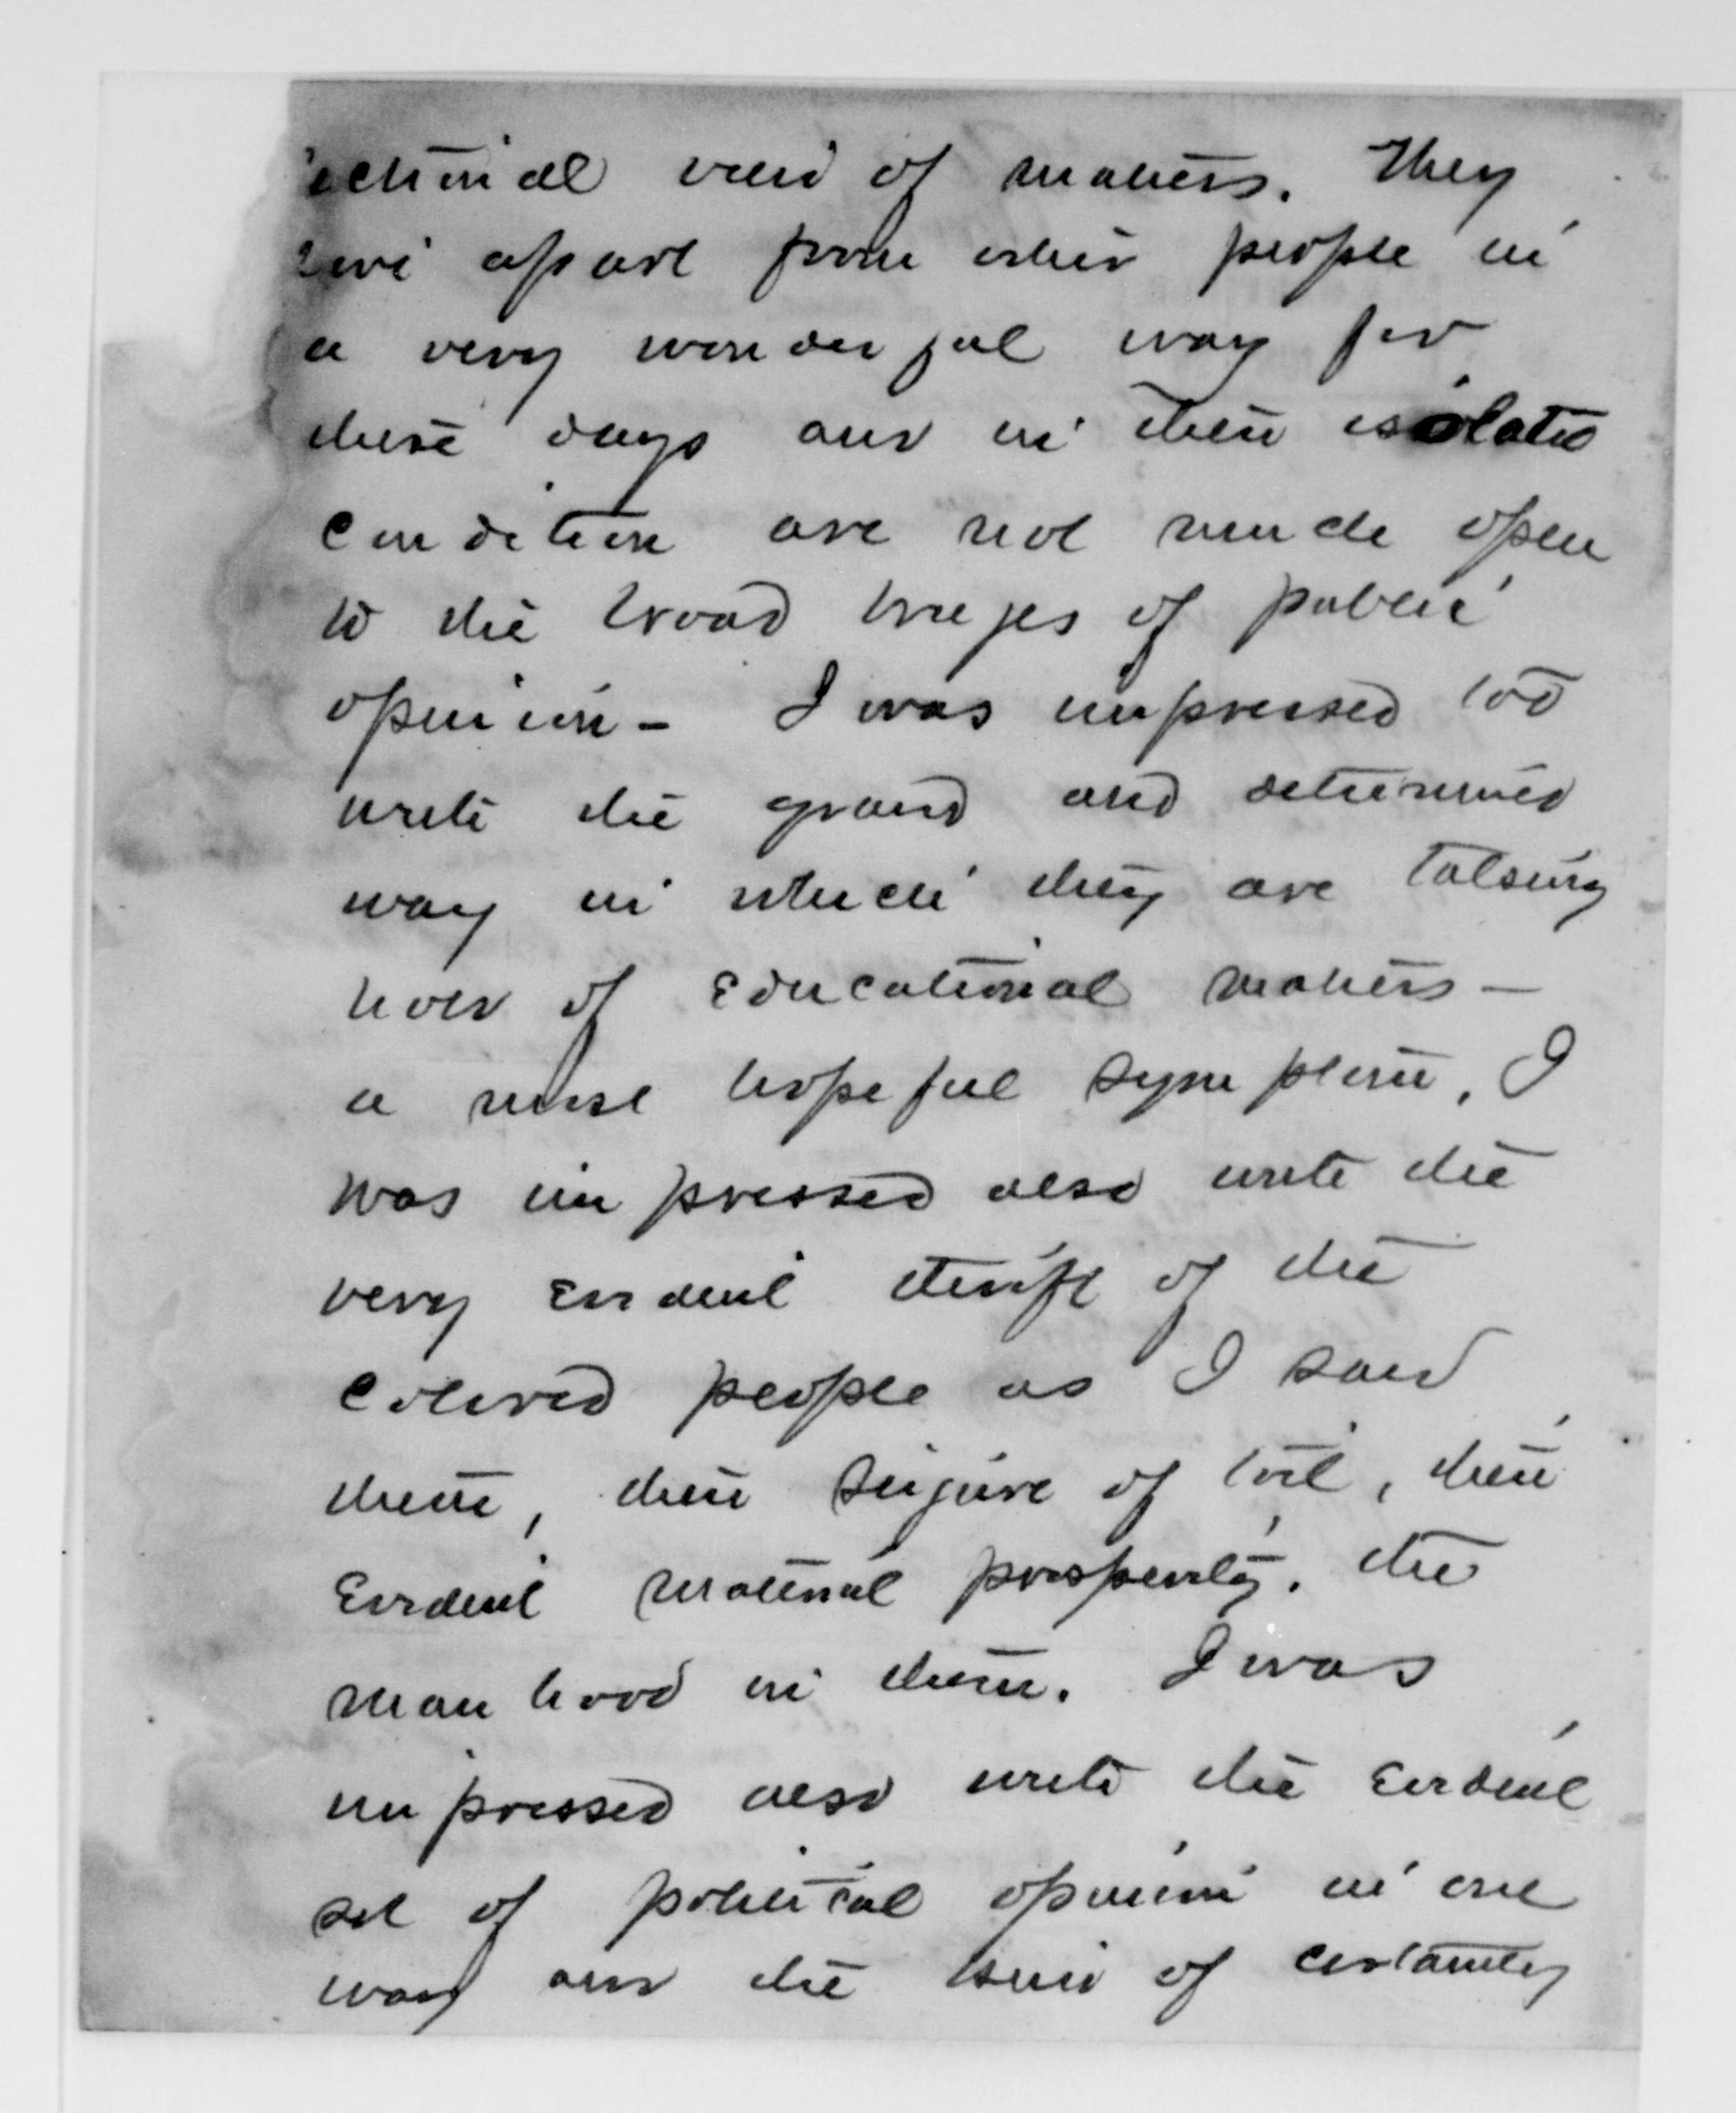 sectional view of matters. They
live apart from other people in
a very wonderful way for
these days and in their isolated
condition are not much open
to the broad breezes of public
opinion - I was impressed too
with the grand and determined
way in which they are taking
hold of educational matters -
a most hopeful symptom, I
was impressed also with the
very evident thrift of the
colored people as I said
them, their of toil, their
evident material prosperity. the
man hood in them. I was
impressed also with the evident
set of political opinion in one
way and the of certainty